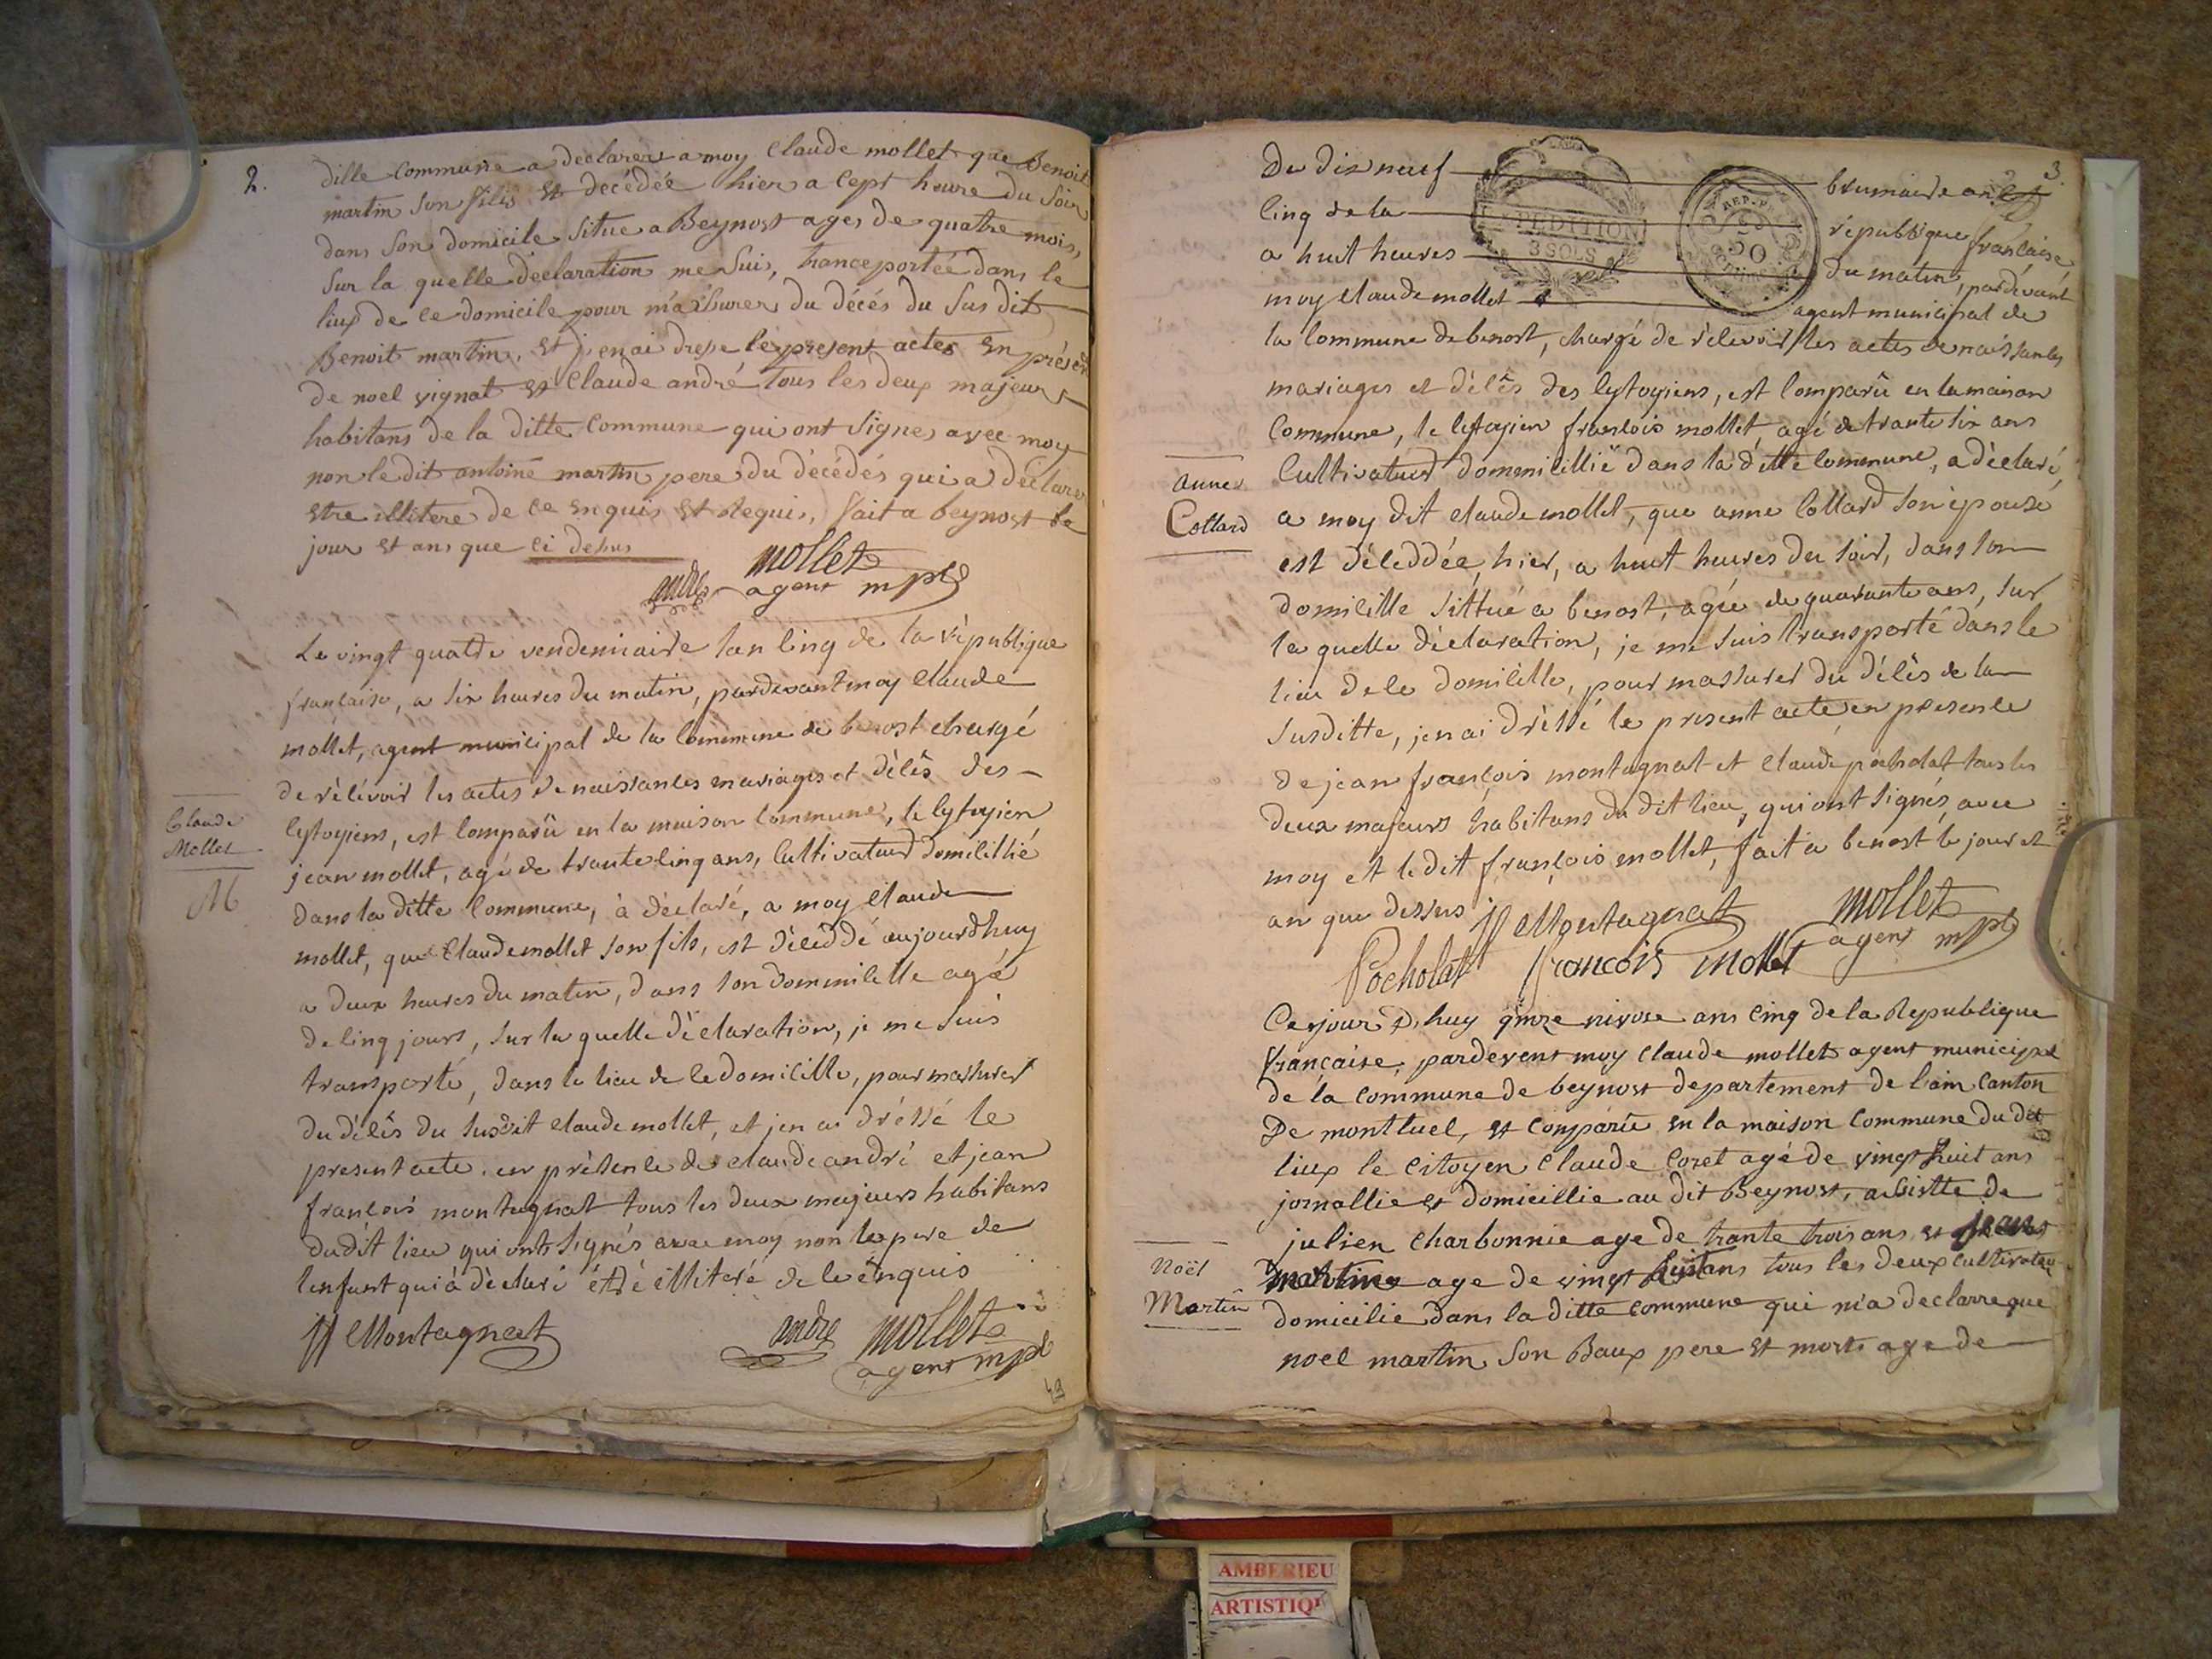 2.
ditte Commune a declarer a moy Claude mollet que Benoit
martin son filis est decédée hier a cept heure du Soir
dans Son domicile situe a Beynost ages de quatre mois,
Sur la quelle declaration me Suis, tranceportée dans le
lieux de ce domicile pour m'aSsurer du décés du Sus dit
Benoit martin, et j'en ai dresse le present actes en présen
de noel vignat et Claude andré Tous les deux majeurs
habitans de la ditte Commune qui ont Signes avec moy
non le dit antoine martin pere du décédés qui a déclarer
estre illitere de ce enquis et Requis, fait a beynost le
jour et ans que ci desus
mollet
andre agent mpl
Le vingt quatre vendemiaire lan cinq de la rèpublique
française, a six heures du matin, pardevant moy Claude
mollet, agent municipal de la Commune de benost chargé
de rècevoir les actes de naissances mariages et dècês des
Claude
Mollet
M
cytoyiens, est comparû en la maison Commune, le cytoyien
jean mollet, agé de trante cinq ans, Cultivateur domicillié
dans la ditte Commune, à dèclaré, a moy Claude
mollet, que Claude mollet son fils, est dècéddé aujourdhuy
a deux heures du matin, dans son dommicille agé
de cinq jours, sur la quelle dèclaration, je me suis
transporté, dans le lieu de ce domicille, pour massurer
du dècês du susdit Claude mollet, et jen ai dréssé le
present acte, en prèsence de claude andré et jean
francois montagnat tous les deux majeurs habitans
dudit lieu qui ont signés avec moy non le pere de
lenfant qui à dèclaré étré illiteré de ce enquis
jf Montagnat andre mollet
agent mpl
3.
Du dix neuf brumaire an
cinq de la rèpublique française
a huit heures du matin, pardevant
moy Claude mollet agent municipal de
EXPEDITION
3 SOLS
REP.
50
la Commune de benost, chargé de rècevoir les actes de naissances
mariages et dècês des cytoyiens, est comparû en la maison
Commune, le cytoyien francois mollet, agé de trante six ans
Anne
Collard
Cultivateur dommicillié dans la ditte Commune, a dèclaré,
a moy dit Claude mollet, que anne Collard son épouse
est dèceddée, hier, a huit heures du soir, dans son
domicille sittué a benost, agée de quarante ans, sur
la quelle dèclaration, je me suis transporté dans le
lieu de ce domicille, pour massurer du dècês de la
susditte, jen ai drèssé le present acte en presence
de jean francois montagnat et Claude pocholat tous les
deux majeurs habitans du dit lieu, qui ont signés avec
moy et le dit francois mollet, fait a benost le jour et
an que dessus jf Montagnat mollet
Pocholat francois mollet agent mpl
Ce jour d'huy qinze nivose ans Cinq de la Republique
française, pardevent moy Claude mollet agent municipal
de la commune de beynost departement de l'ain Canton
De montluel, est Comparûe en la maison Commune du dit
lieux le Citoyen Claude Coret agé de vingt huit ans
jornallie et domicillie au dit Beynost, assistte de
julien Charbonnie age de trante trois ans et jean
Noël
Martin
martin age de vingt huit ans tous les deux cultivateu
domicilie dans la ditte commune qui m'a declarre que
noel martin Son Baux pere est mort age de
AMBERIEU
ARTISTIQU